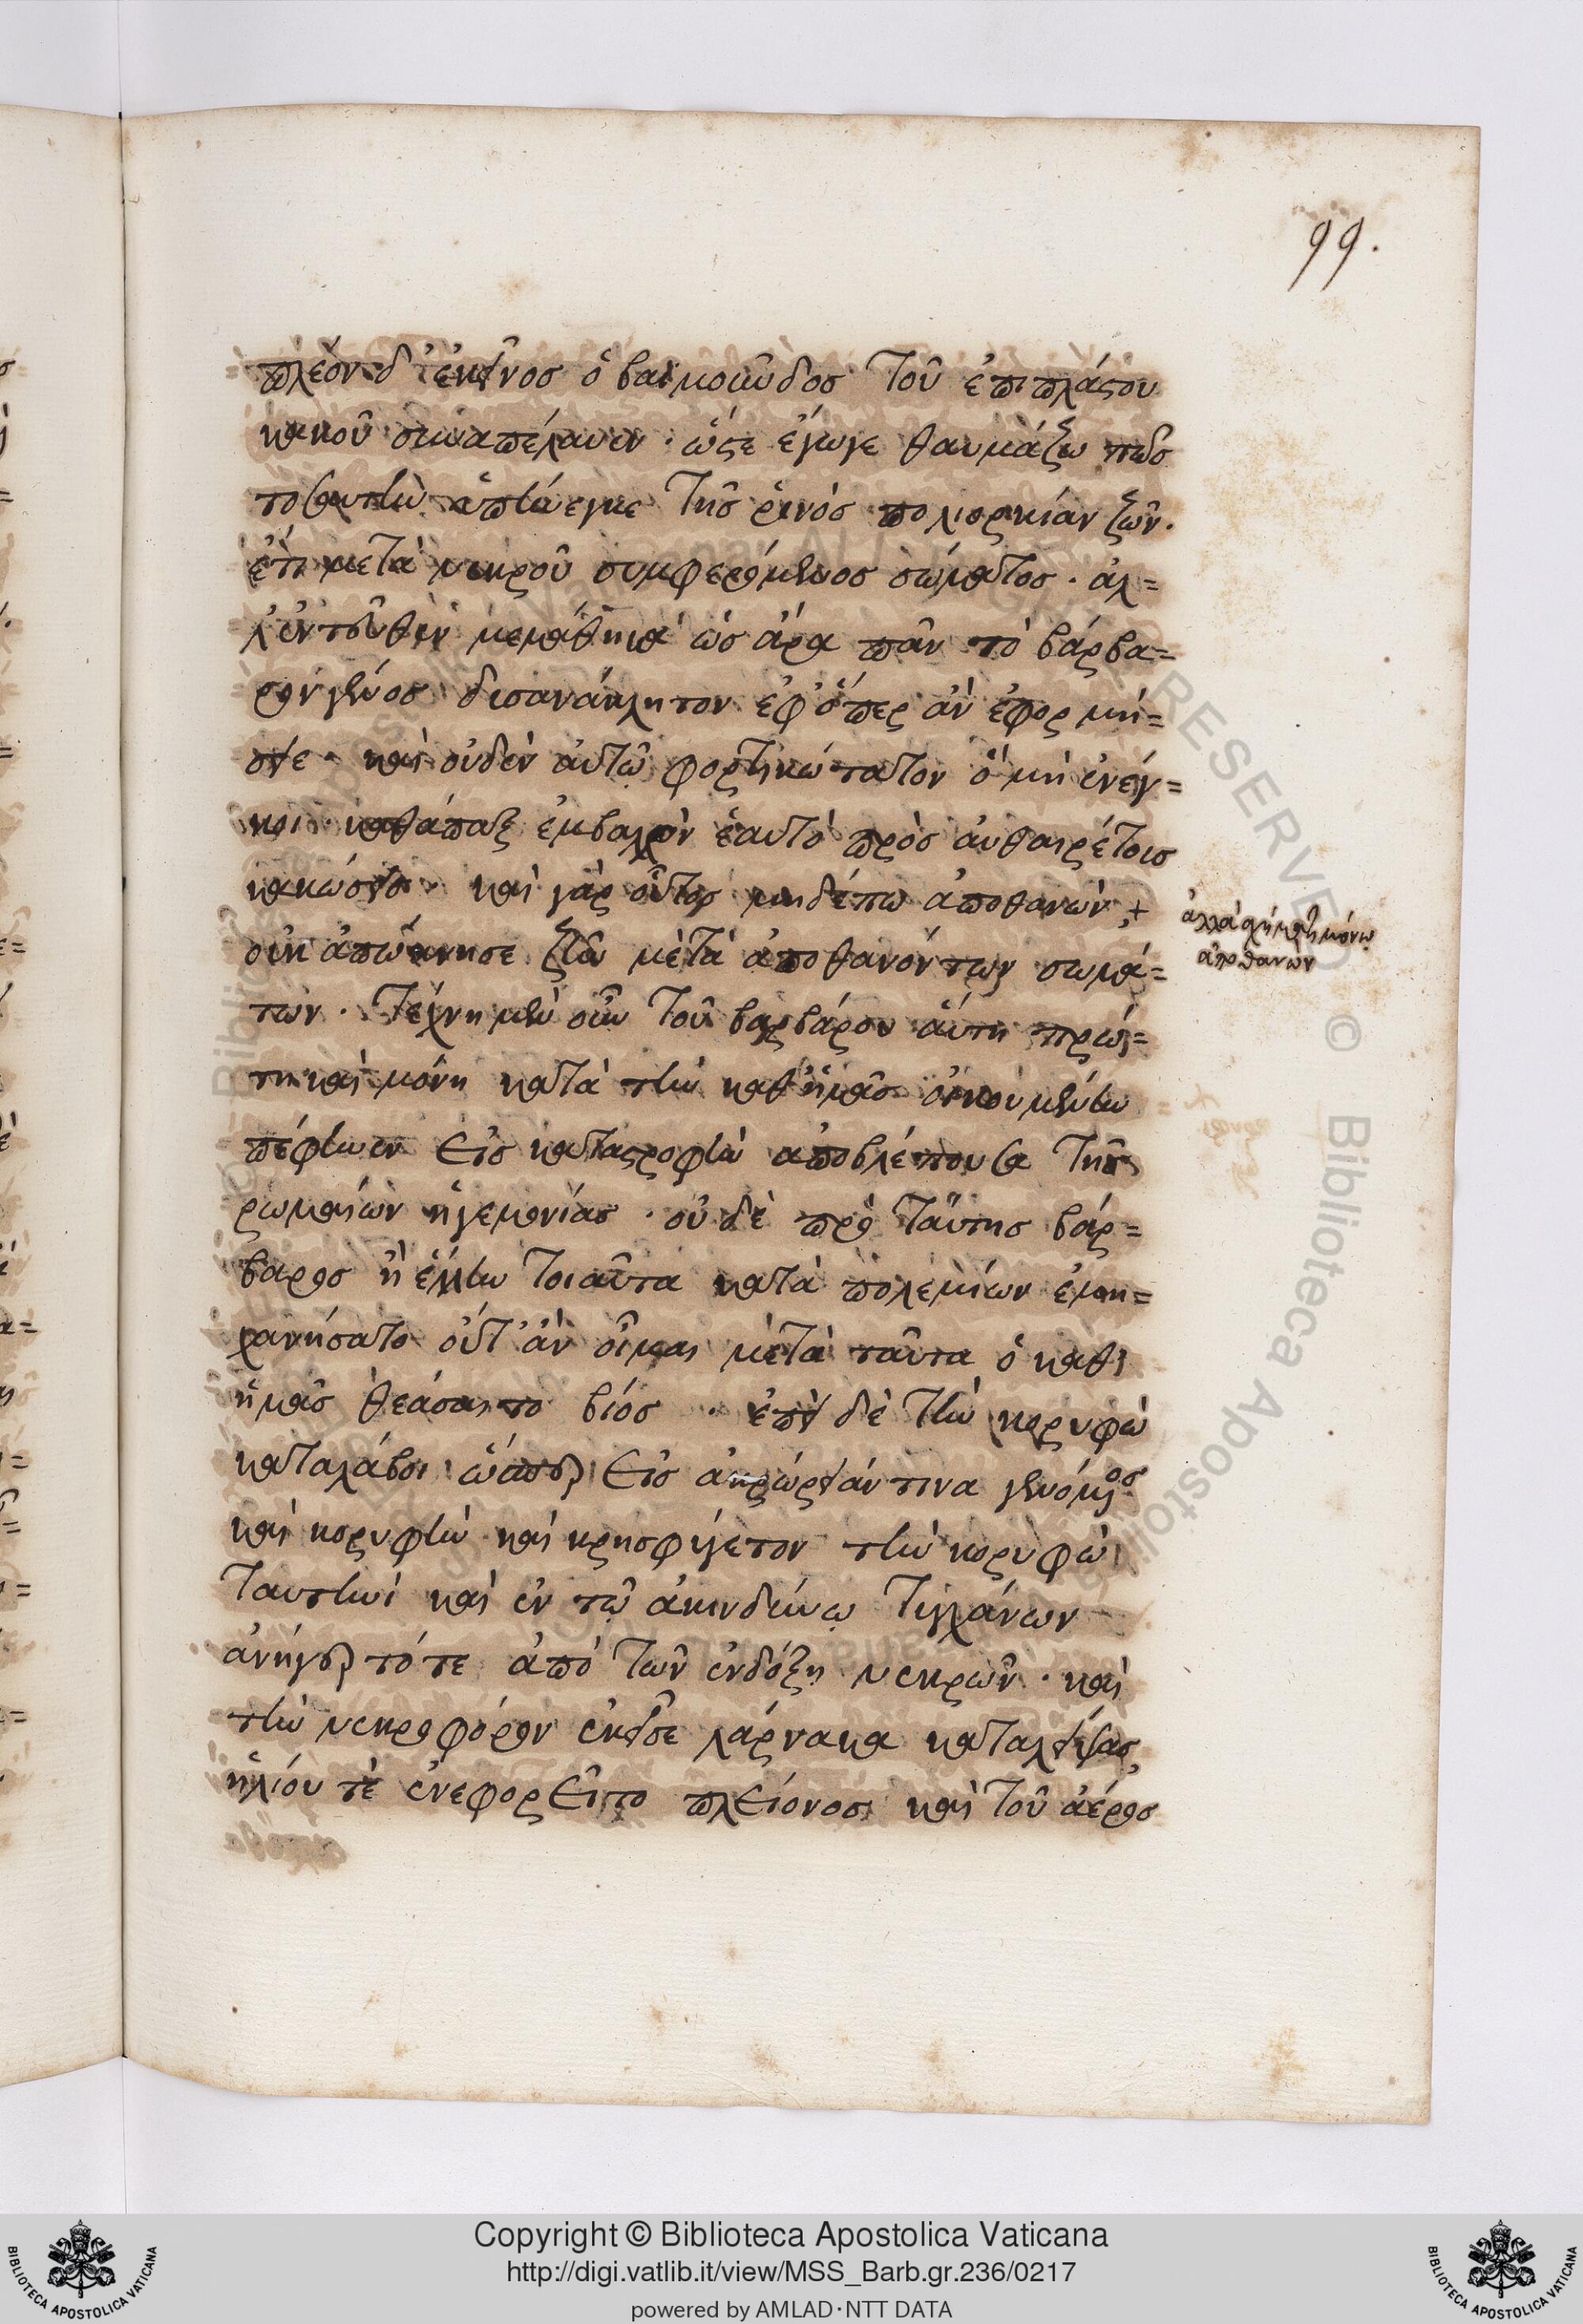 99.
πλέον δ' ἐκεῖνος ὁ βαϊμοῦνδος τοῦ ἐπιπλάστου
κακοῦ συναπέλαυεν · ὥστε ἔγωγε θαυμάζω πῶς
τοσαυτην ὑπήνεγκε τῆς ρινὸς πολιορκίαν ζῶν.
ἔτι μετὰ νεκροῦ συμφερόμενος σώματος · ἀλ=
λ' ἐντεῦθεν μεμάθηκα ὡς ἄρα πᾶν τὸ βάρβα=
ρον γένος δυσανάκλητον ἐφ' ὅπερ ἂν ἐφορμή=
σειε · καὶ οὐδὲν αὐτῶ φορτικώτατον ὃ μὴ ἐνέγ=
κοι καθάπαξ ἐμβαλὸν ἑαυτὸ πρὸς αὐθαιρέτοις
κακώσεσι · καὶ γὰρ οὗτος μηδέπω ἀποθανὼν +
ἀλλὰ σχήματι μόνω
ἀποθανὼν
οὐκ ἀπώκνησε ζῆν μετὰ ἀποθανόντων σωμά=
των · τέχνη μὲν οὖν τοῦ βαρβάρου αὕτη πρώ=
τη καὶ μόνη κατὰ τὴν καθ' ἡμᾶς οἰκουμένην
πέφηνεν εἰς καταστροφὴν ἀποβλέπουσα τῆς
ρωμαίων ἡγεμονίας · οὐδὲ πρὸ ταύτης βάρ=
βαρος ἢ ἕλλην τοιαῦτα κατὰ πολεμίων ἐμη=
χανήσατο οὔτ' ἂν οἶμαι μετὰ ταῦτα ὁ καθ'
ἡμᾶς θεάσαιτο βίος · ἐπεὶ δὲ τὴν κορυφὼ
καταλάβοι ὥσπερ εἰς ἀκρώρειάν τινα γενόμενος
καὶ κορυφὴν καὶ κρησφύγετον τὴν κορυφὼ
ταυτηνὶ καὶ ἐν τῶ ἀκινδύνω τυγχάνων
ἀνήγερτό τε ἀπὸ τῶν ἐνδόξη νεκρῶν · καὶ
τὴν νεκροφόρον ἐκεῖσε λάρνακα καταλείψας
ἡλίου τὲ ἐνεφορεῖτο πλείονος καὶ τοῦ ἀέρος
Copyright © Biblioteca Apostolica Vaticana
http://digi.vatlib.it/view/MSS_Barb.gr.236/0217
powered by AMLAD·NTT DATA
BIBLIOTECA APOSTOLICA VATICANA
BIBLIOTECA APOSTOLICA VATICANA